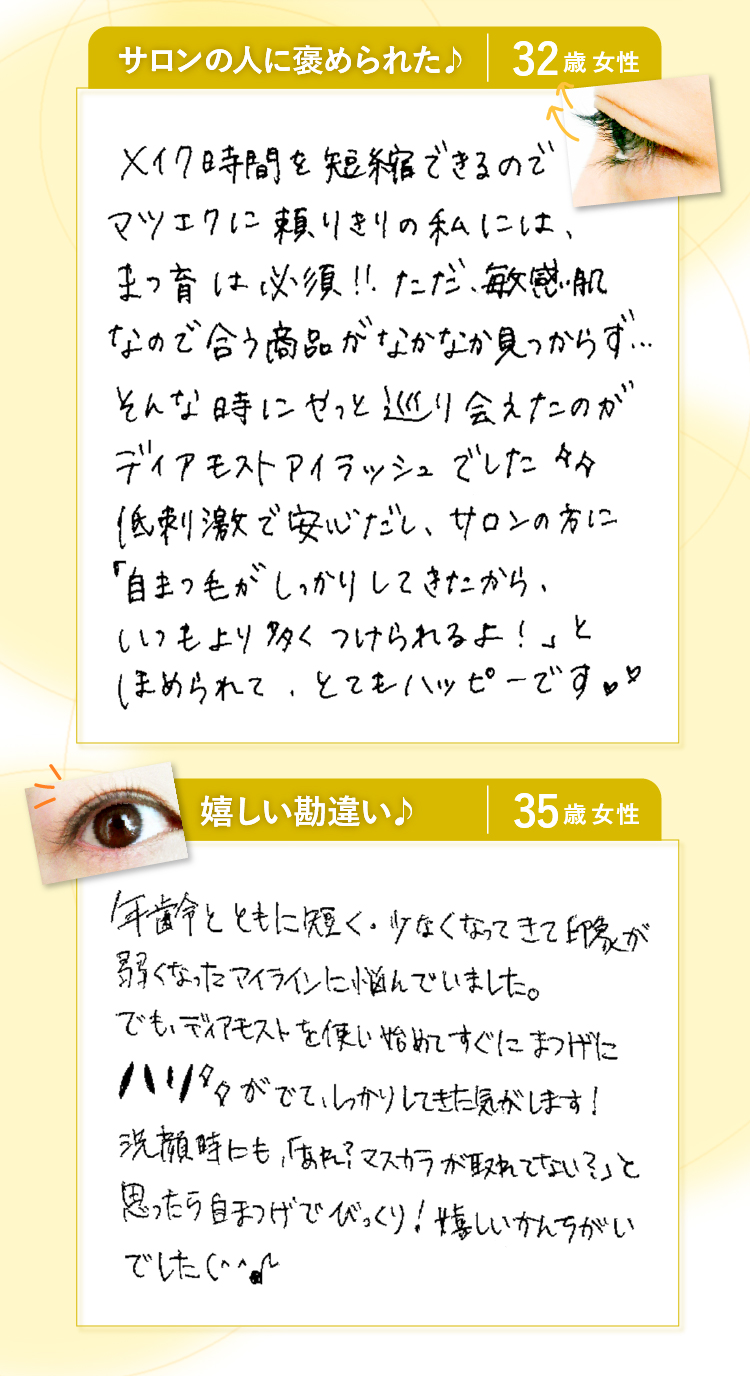 サロンの人に褒められた♪ 32歳 女性
メイク時間を短縮できるので
マツエクに頼りきりの私には、
まつ育は必須!!ただ、敏感肌
なので合う商品がなかなか見つからず…
そんな時にやっと巡り会えたのが
ディアモストアイラッシュでした
低刺激で安心だし、サロンの方に
「自まつ毛がしっかりしてきたから、
いつもより多くつけられるよ!」と
ほめられて、とてもハッピーです♥♥
嬉しい勘違い♪ 35歳 女性
年齢とともに短く・少なくなってきて印象が
弱くなったアイラインに悩んでいました。
でも、ディアモストを使い始めてすぐにまつげに
ハリがでて、しっかりしてきた気がします!
洗顔時にも、「あれ?マスカラが取れてない?」と
思ったら自まつげでびっくり!嬉しいかんちがい
でした(^^♪